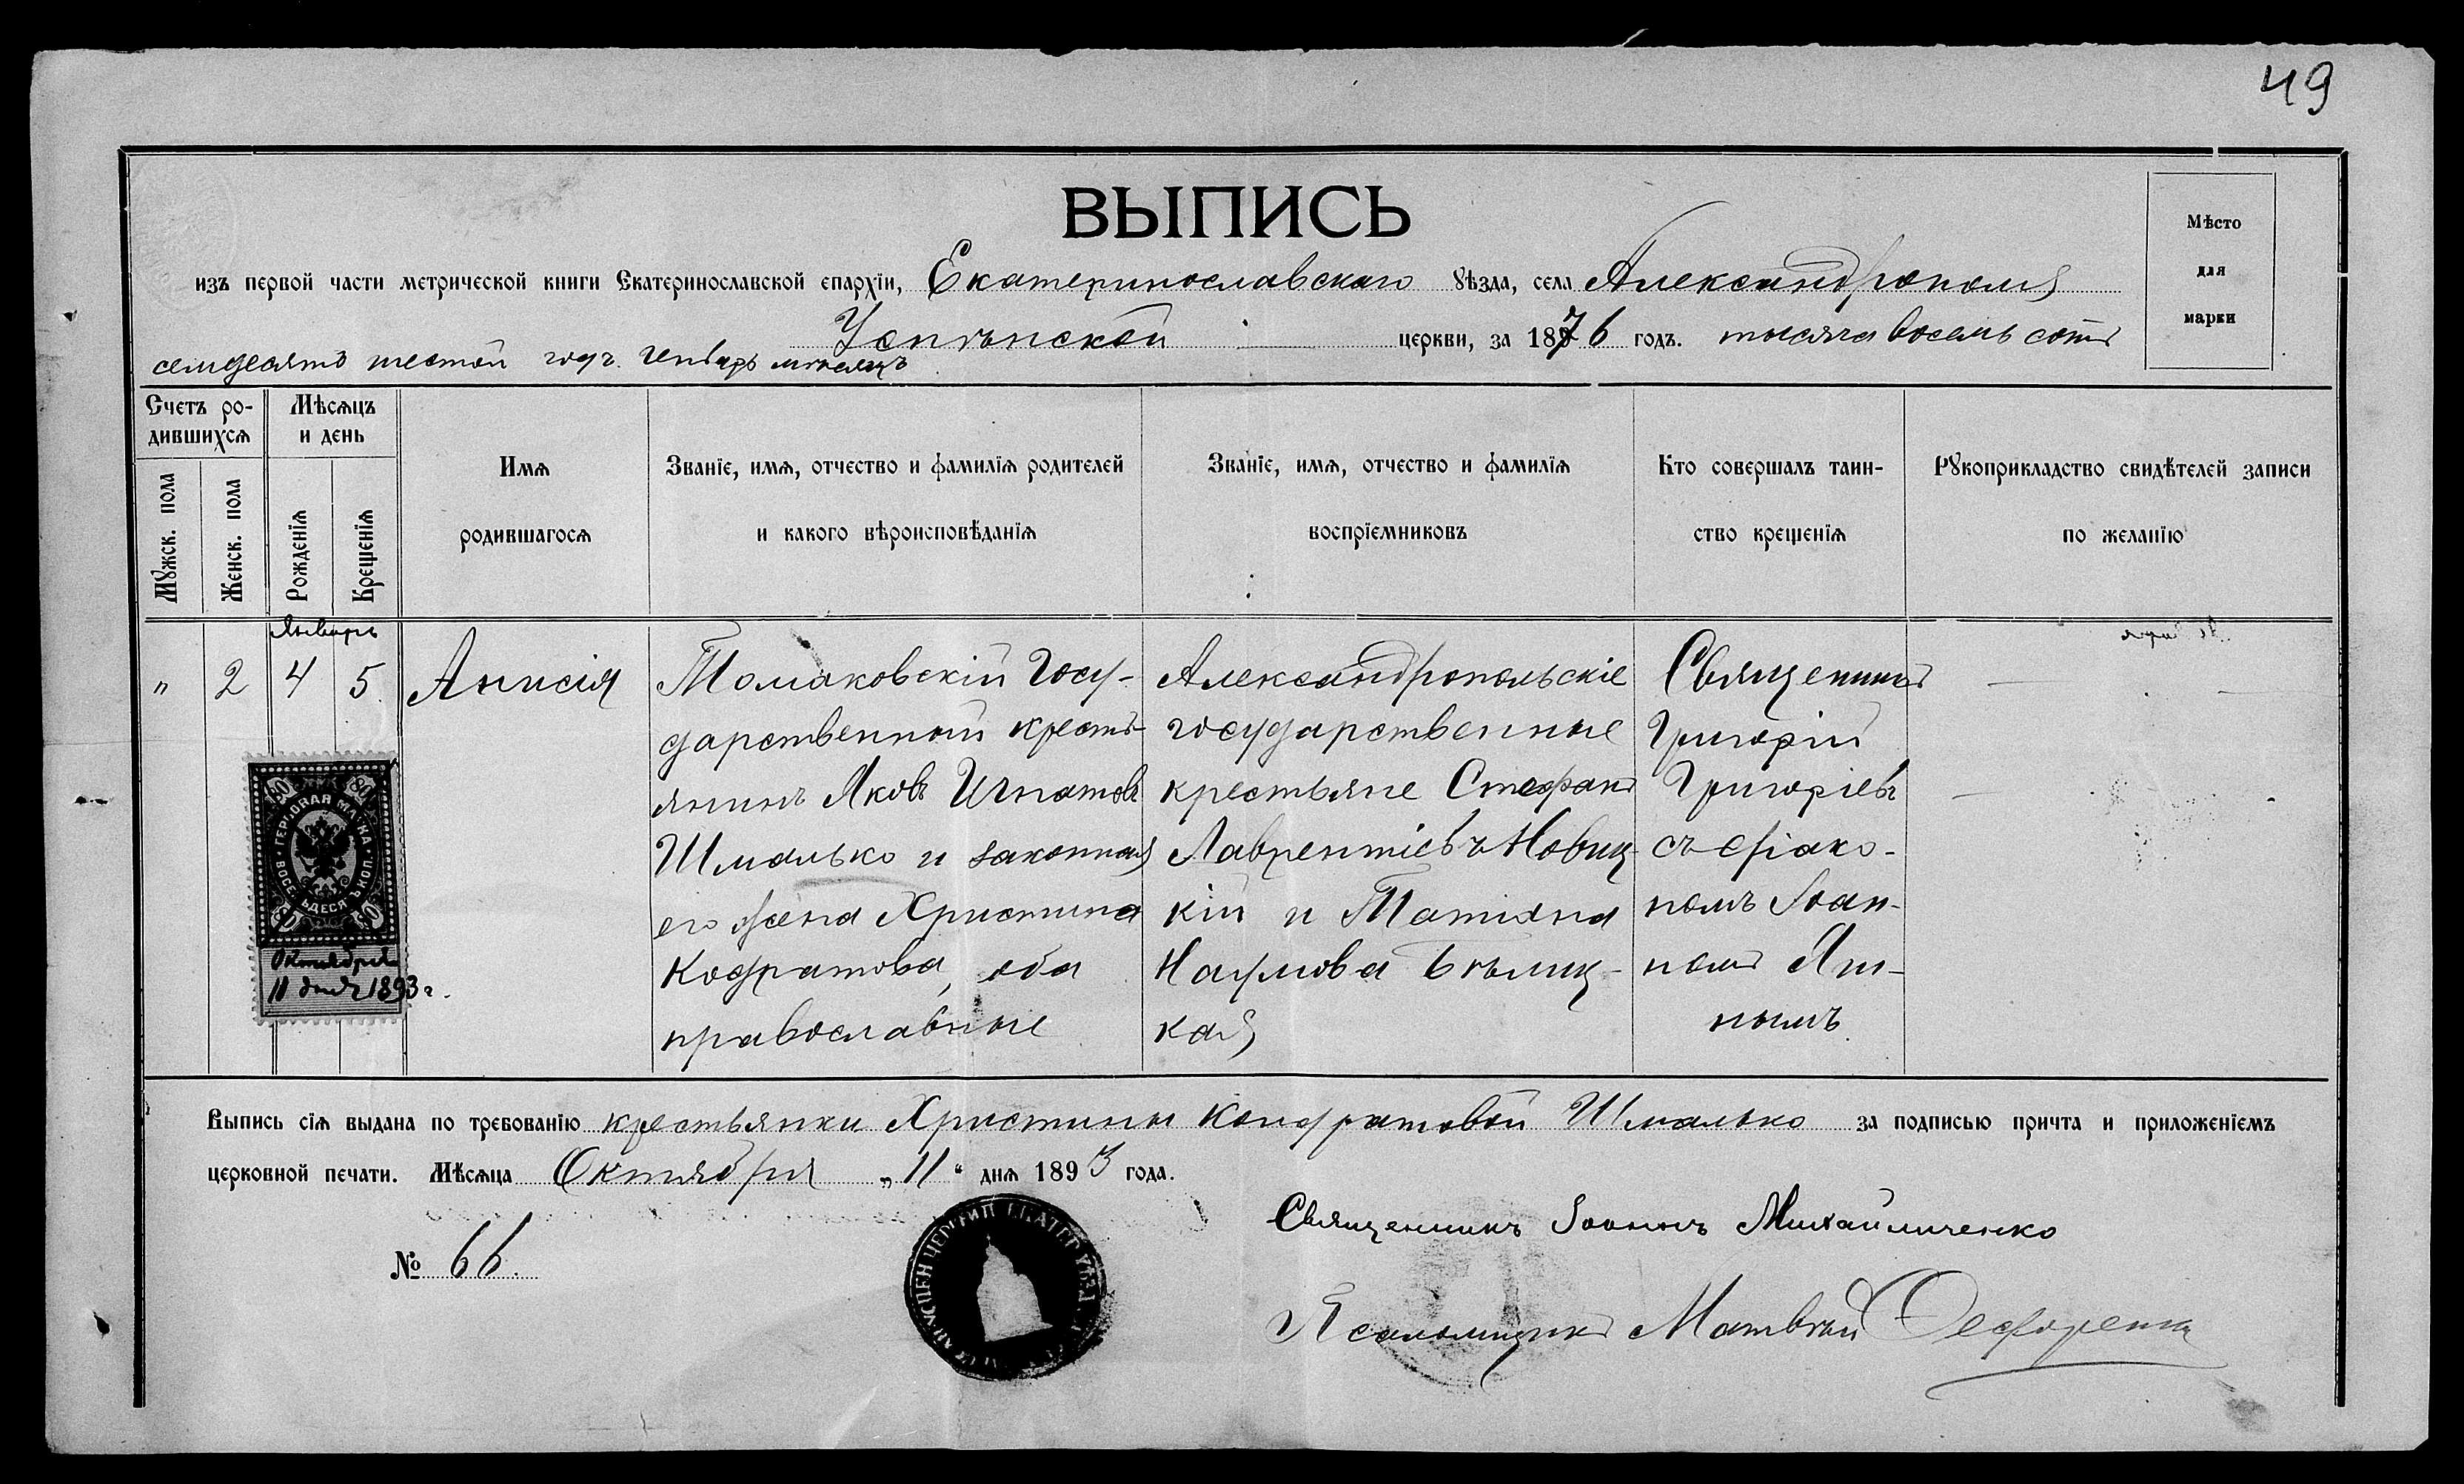 49
ВЫПИСЬ
Мѣсто
для
марки
изъ первой части метрической книги Екатеринославской епархіи, Екатеринославскаго уѣзда, села Александрополя
Успѣнской церкви, за 1876 годъ. тысяча восемь сотъ
семдесятъ шестой годъ. Генварь мѣсяцъ
Счетъ ро-
дившихся
Мѣсяцъ
и день
Мужск. пола
Женск. пола
Рожденія
Крещенія
Имя
родившагося
Званіе, имя, отчество и фамилія родителей
и какого вѣроисповѣданія
Званіе, имя, отчество и фамилія
воспріемниковъ
Кто совершалъ таин-
ство крещенія
Рукоприкладство свидѣтелей записи
по желанію
Январь
„ 2 4 5
Анисія
Томаковскій Госу-
дарственной кресть-
янинъ Яковъ Игнатовъ
Шмалько и законная
его жена Христина
Кодратова, оба
православные
Александропольскіе
государственные
крестьяне Стефанъ
Лаврентіевъ Новиц-
кій и Татіяна
Наумова Бѣлиц-
кая
Священникъ
Григорій
Григоріевъ
съ діако-
номъ Іоан-
номъ
ГЕРБОВАЯ МАРКА
ВОСЕМЬДЕСЯТЪ КОП.
80 80
80 80
Октября
11 дня 1893 г.
Выпись сія выдана по требованію крестьянки Христины Кондратовой Шмалько за подписью причта и приложеніемъ
церковной печати. Мѣсяца Октября „11“ дня 1893 года.
№ 66.
Священникъ Іоаннъ Михайличенко
Псаломщикъ Матвѣй